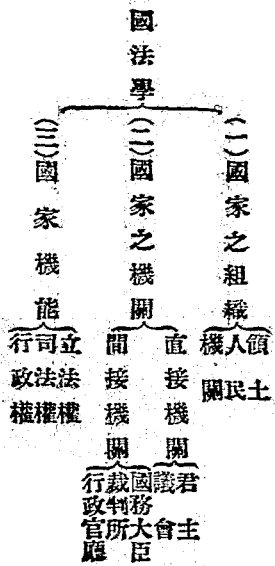 國法學
(一)國家之組織
領土
人民
機關
(二)國家之機關
直接機關
君主
議會
間接機關
國務大臣
裁判所
行政官廳
(三)國家機能
立法權
司法權
行政權